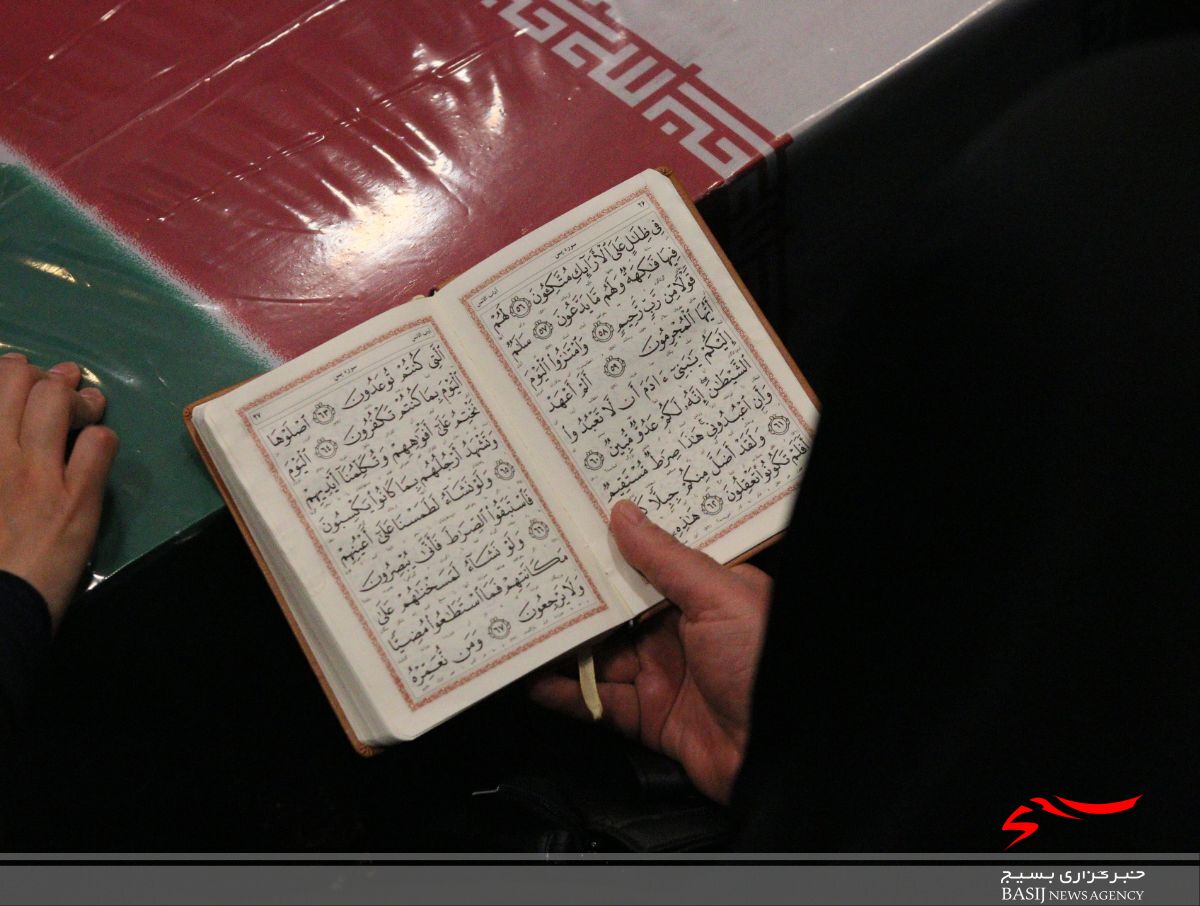 ۲۶
سورة يس
في ظِلَٰلٍ عَلَى الْأَرَآئِكِ مُتَّكِئُونَ ﴿٥٦﴾ لَهُمْ
فِيهَا فَٰكِهَةٌ وَلَهُم مَّا يَدَّعُونَ ﴿٥٧﴾ سَلَٰمٌ
قَوْلًا مِن رَّبٍّ رَّحِيمٍ ﴿٥٨﴾ وَامْتَٰزُوا الْيَوْمَ
أَيُّهَا الْمُجْرِمُونَ ﴿٥٩﴾ أَلَمْ أَعْهَدْ
إِلَيْكُمْ يَٰبَنِيٓ ءَادَمَ أَن لَّا تَعْبُدُوا
الشَّيْطَٰنَ إِنَّهُ لَكُمْ عَدُوٌّ مُّبِينٌ ﴿٦٠﴾
وَأَنِ اعْبُدُونِي هَٰذَا صِرَٰطٌ مُّسْتَقِيمٌ ﴿٦١﴾
وَلَقَدْ أَضَلَّ مِنكُمْ جِبِلًّا
أَفَلَمْ تَكُونُوا تَعْقِلُونَ ﴿٦٢﴾ هَٰذِهِ
۲۷
سورة يس
الَّتِي كُنتُمْ تُوعَدُونَ ﴿٦٣﴾ اصْلَوْهَا
الْيَوْمَ بِمَا كُنتُمْ تَكْفُرُونَ ﴿٦٤﴾ الْيَوْمَ
نَخْتِمُ عَلَىٰٓ أَفْوَٰهِهِمْ وَتُكَلِّمُنَآ أَيْدِيهِمْ
وَتَشْهَدُ أَرْجُلُهُم بِمَا كَانُوا يَكْسِبُونَ
﴿٦٥﴾ وَلَوْ نَشَآءُ لَطَمَسْنَا عَلَىٰٓ أَعْيُنِهِمْ
فَاسْتَبَقُوا الصِّرَٰطَ فَأَنَّىٰ يُبْصِرُونَ
﴿٦٦﴾ وَلَوْ نَشَآءُ لَمَسَخْنَٰهُمْ عَلَىٰ
مَكَانَتِهِمْ فَمَا اسْتَطَٰعُوا مُضِيًّا
وَلَا يَرْجِعُونَ ﴿٦٧﴾ وَمَن نُّعَمِّرْهُ
خبرگزاری بسیج
BASIJ NEWS AGENCY